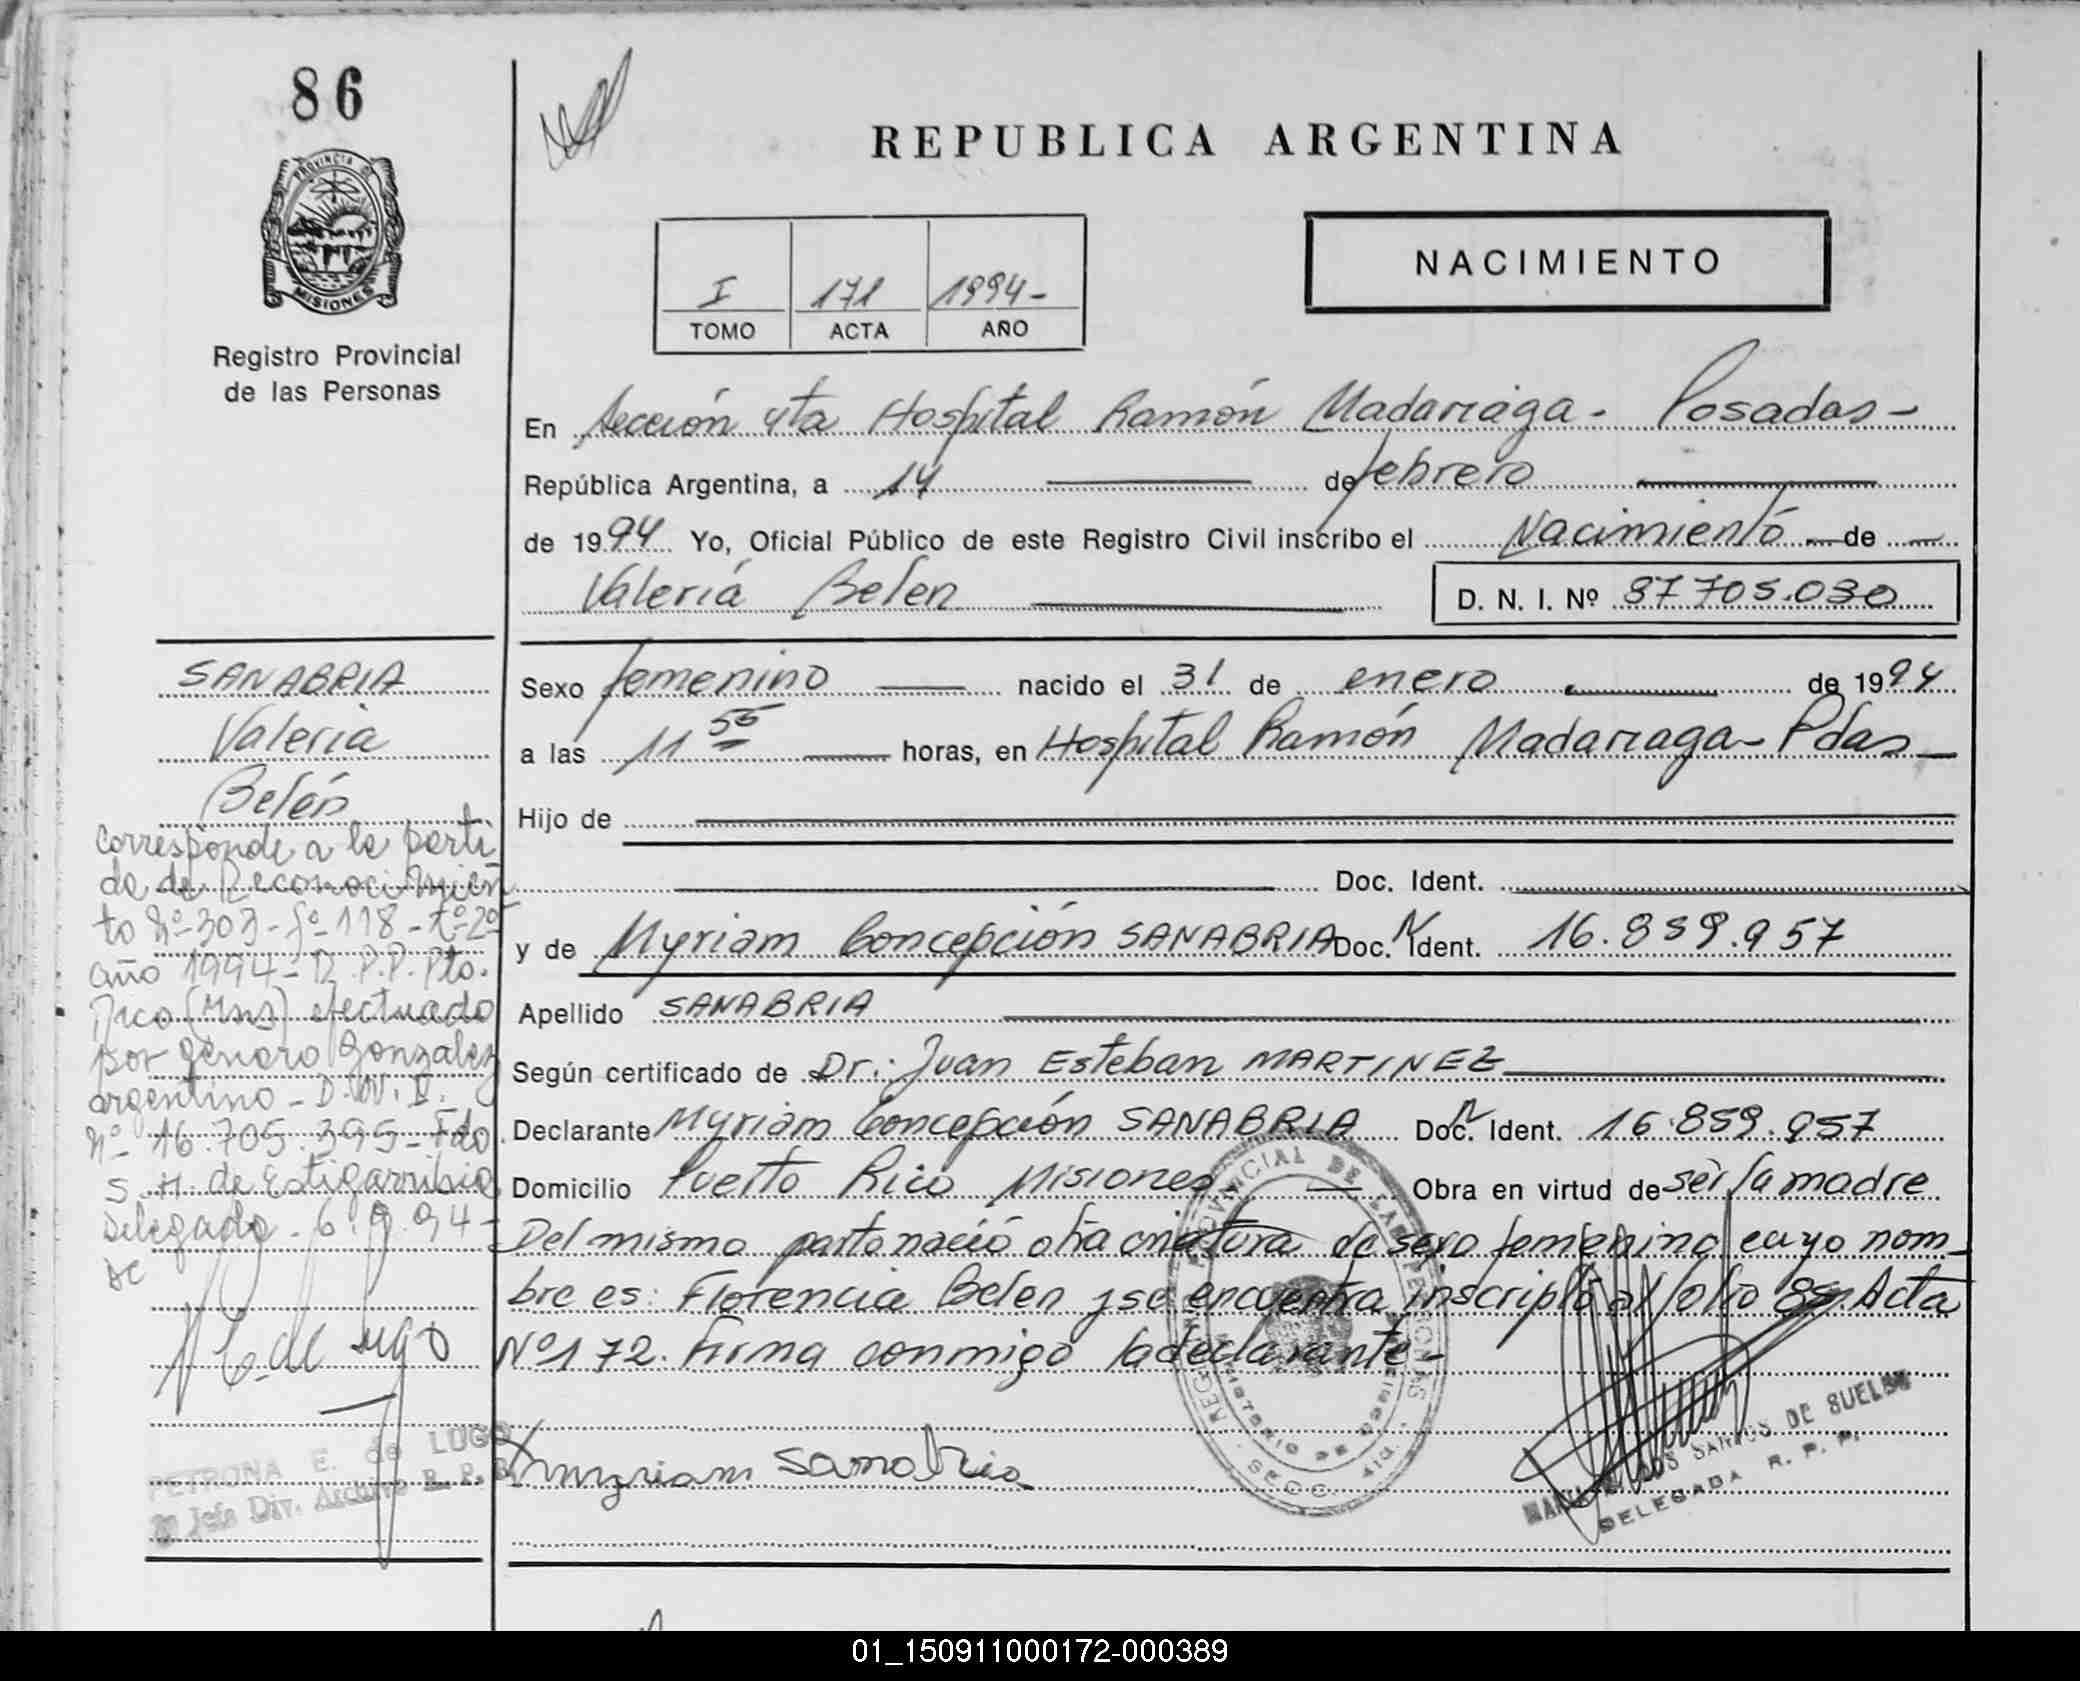 86
REPUBLICA ARGENTINA
PROVINCIA DE
MISIONES
Registro Provincial
de las Personas
I 171 1994-
TOMO ACTA AÑO
NACIMIENTO
En Sección 4ta Hospital Ramón Madariaga - Posadas -
República Argentina, a 14 de febrero
de 1994 Yo, Oficial Público de este Registro Civil inscribo el Nacimiento de
Valeria Belen D. N. I. Nº 37705.030
SANABRIA
Valeria
Belén
Sexo femenino nacido el 31 de enero de 1994
a las 11 55 horas, en Hospital Ramón Madariaga - Pdas
Hijo de
Doc. Ident.
y de Myriam Concepción SANABRIA Doc. Ident. 16.859.957
Apellido SANABRIA
Según certificado de Dr: Juan Esteban MARTINEZ
Declarante Myriam Concepción SANABRIA Doc. Ident. 16.859.957
Domicilio Puerto Rico Misiones Obra en virtud de ser la madre
Del mismo parto nació otra criatura de sexo femenino cuyo nom-
bre es: Florencia Belen y se encuentra inscripto al folio Acta
Nº 172. Firma conmigo la declarante -
Corresponde a la parti
da de Reconocimien
to Nº 303 - Fº 118 - Tº 2º
año 1994 - R.P.P. Pto.
Rico (Mns) efectuado
por Genaro Gonzalez
argentino - D.N.I.
Nº 16.705.395 - Fdo
S. H. de Estigarribia
Delegada - 6.9.94 -
de Lugo
PETRONA E. de LUGO
Jefe Div. Archivo R. P. P.
Myriam Sanabria
SANTOS DE BUELBE
DELEGADA R. P. P.
01_150911000172-000389